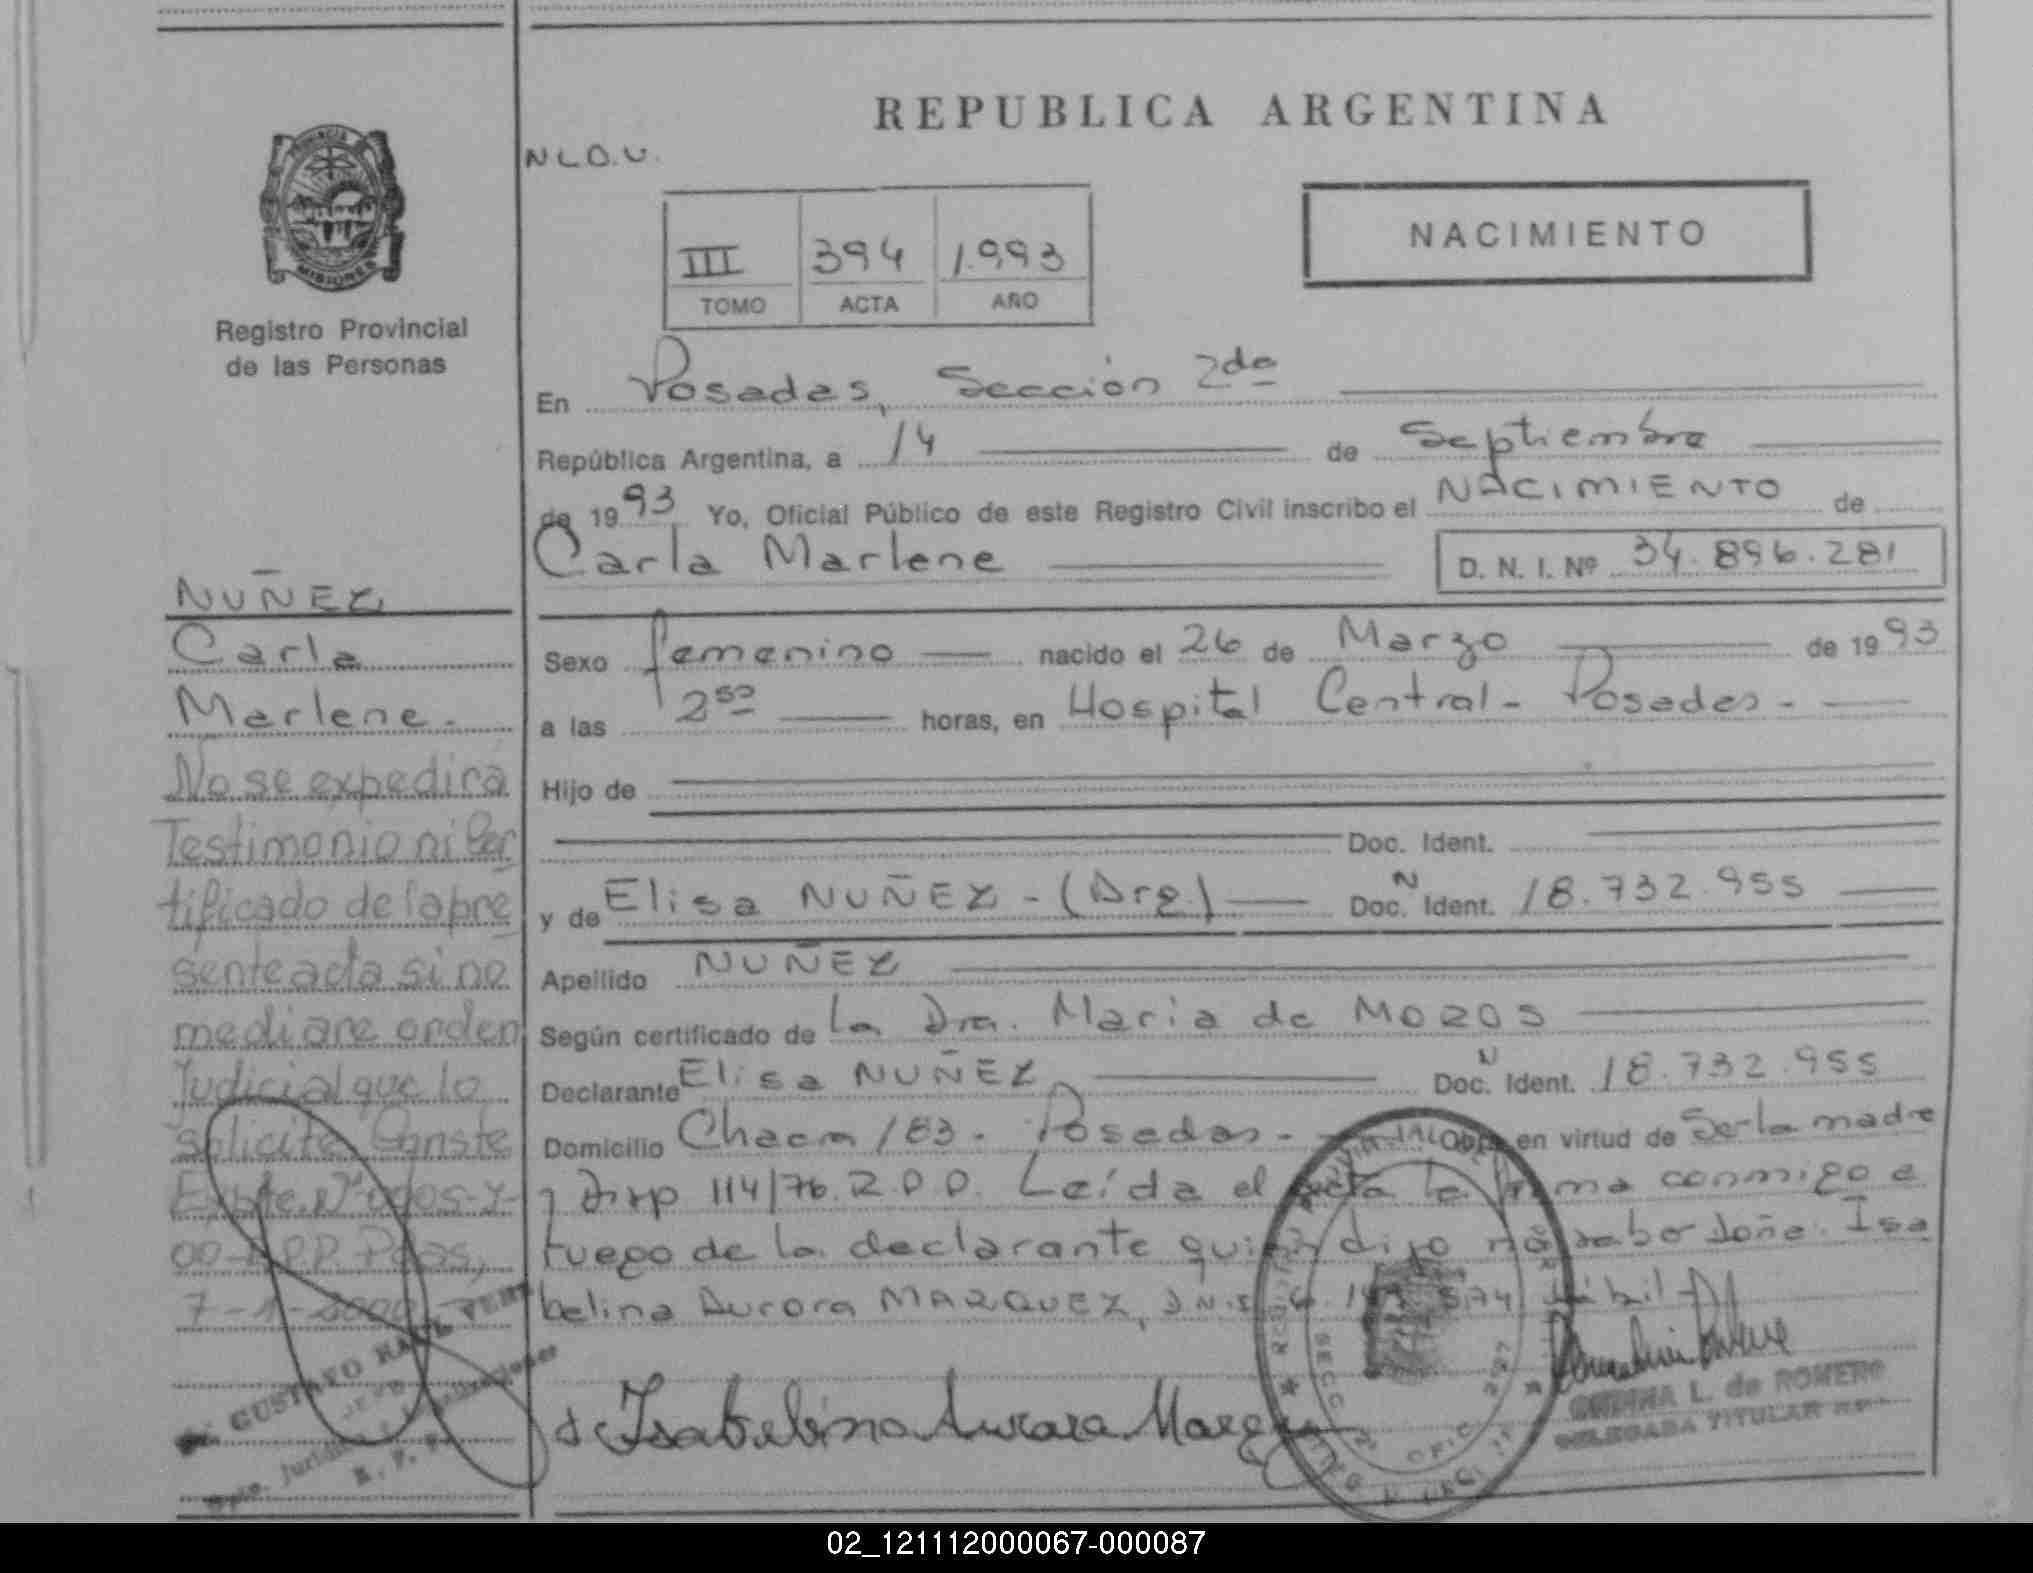 REPUBLICA ARGENTINA
N.L.O.V.
NACIMIENTO
III 394 1.993
TOMO ACTA AÑO
PROVINCIA
MISIONES
Registro Provincial
de las Personas
En Posadas, Sección 2da
República Argentina, a 14 de Septiembre
de 1993 Yo, Oficial Público de este Registro Civil inscribo el NACIMIENTO de
Carla Marlene D. N. I. Nº 34.896.281
Sexo femenino nacido el 26 de Marzo de 1993
a las 2⁵⁰ horas, en Hospital Central - Posadas -
Hijo de
Doc. Ident.
y de Elisa NUÑEZ - (Arg.) N Doc. Ident. 18.732.955
Apellido NUÑEZ
Según certificado de la Dra. Maria de MOZOS
Declarante Elisa NUÑEZ N Doc. Ident. 18.732.955
Domicilio Chacra 183. Posadas - en virtud de Ser la madre
y Disp 114/76. R.P.P. Leída el acta la firma conmigo a
ruego de la declarante quien dijo no saber doña Isa
belina Aurora MARQUEZ, D.N.I. hábil
Isabelina Aurora Marquez
L. de ROMERO
DELEGADA TITULAR
NUÑEZ
Carla
Marlene.-
No se expedirá
Testimonio ni Cer
tificado de la pre
sente acta si no
mediare orden
Judicial que lo
solicite. Conste
Expte. Nº
00-R.P.P. Pdas,
7-1-2000
GUSTAVO
02_121112000067-000087